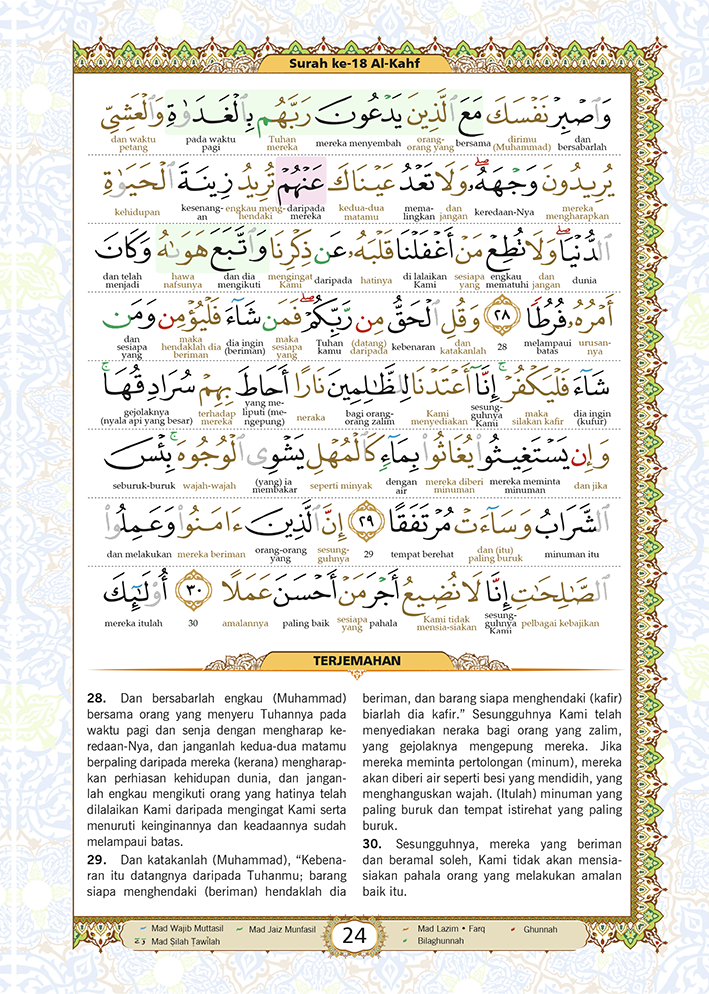 Surah ke-18 Al-Kahf
وَٱصْبِرْ نَفْسَكَ مَعَ ٱلَّذِينَ يَدْعُونَ رَبَّهُم بِٱلْغَدَوٰةِ وَٱلْعَشِىِّ
dan bersabarlah dirimu (Muhammad) bersama orang-orang yang mereka menyembah Tuhan mereka pada waktu pagi dan waktu petang
يُرِيدُونَ وَجْهَهُۥۖ وَلَا تَعْدُ عَيْنَاكَ عَنْهُمْ تُرِيدُ زِينَةَ ٱلْحَيَوٰةِ
mereka mengharapkan keredaan-Nya dan jangan memalingkan kedua-dua matamu daripada mereka engkau menghendaki kesenangan kehidupan
ٱلدُّنْيَاۖ وَلَا تُطِعْ مَنْ أَغْفَلْنَا قَلْبَهُۥ عَن ذِكْرِنَا وَٱتَّبَعَ هَوَىٰهُ وَكَانَ
dunia dan jangan engkau mematuhi sesiapa yang di lalaikan Kami hatinya daripada mengingat Kami dan dia mengikuti hawa nafsunya dan telah menjadi
أَمْرُهُۥ فُرُطًا ٢٨ وَقُلِ ٱلْحَقُّ مِن رَّبِّكُمْۖ فَمَن شَآءَ فَلْيُؤْمِن وَمَن
urusan-nya melampaui batas 28 dan katakanlah kebenaran (datang) daripada Tuhan kamu maka sesiapa yang dia ingin (beriman) maka hendaklah dia beriman dan sesiapa yang
شَآءَ فَلْيَكْفُرْۚ إِنَّآ أَعْتَدْنَا لِلظَّٰلِمِينَ نَارًا أَحَاطَ بِهِمْ سُرَادِقُهَاۚ
dia ingin (kufur) maka silakan kafir sesung-guhnya Kami Kami menyediakan bagi orang-orang zalim neraka yang me-liputi (me-ngepung) terhadap mereka gejolaknya (nyala api yang besar)
وَإِن يَسْتَغِيثُوا۟ يُغَاثُوا۟ بِمَآءٍ كَٱلْمُهْلِ يَشْوِى ٱلْوُجُوهَۚ بِئْسَ
dan jika mereka meminta minuman mereka diberi minuman dengan air seperti minyak (yang) ia membakar wajah-wajah seburuk-buruk
ٱلشَّرَابُ وَسَآءَتْ مُرْتَفَقًا ٢٩ إِنَّ ٱلَّذِينَ ءَامَنُوا۟ وَعَمِلُوا۟
minuman itu dan (itu) paling buruk tempat berehat 29 sesung-guhnya orang-orang yang mereka beriman dan melakukan
ٱلصَّٰلِحَٰتِ إِنَّا لَا نُضِيعُ أَجْرَ مَنْ أَحْسَنَ عَمَلًا ٣٠ أُو۟لَٰٓئِكَ
pelbagai kebajikan sesung-guhnya Kami Kami tidak mensia-siakan pahala sesiapa yang paling baik amalannya 30 mereka itulah
TERJEMAHAN
28. Dan bersabarlah engkau (Muhammad)
bersama orang yang menyeru Tuhannya pada
waktu pagi dan senja dengan mengharap ke-
redaan-Nya, dan janganlah kedua-dua matamu
berpaling daripada mereka (kerana) mengharap-
kan perhiasan kehidupan dunia, dan jangan-
lah engkau mengikuti orang yang hatinya telah
dilalaikan Kami daripada mengingat Kami serta
menuruti keinginannya dan keadaannya sudah
melampaui batas.
29. Dan katakanlah (Muhammad), “Kebena-
ran itu datangnya daripada Tuhanmu; barang
siapa menghendaki (beriman) hendaklah dia
beriman, dan barang siapa menghendaki (kafir)
biarlah dia kafir.” Sesungguhnya Kami telah
menyediakan neraka bagi orang yang zalim,
yang gejolaknya mengepung mereka. Jika
mereka meminta pertolongan (minum), mereka
akan diberi air seperti besi yang mendidih, yang
menghanguskan wajah. (Itulah) minuman yang
paling buruk dan tempat istirehat yang paling
buruk.
30. Sesungguhnya, mereka yang beriman
dan beramal soleh, Kami tidak akan mensia-
siakan pahala orang yang melakukan amalan
baik itu.
Mad Wajib Muttasil Mad Jaiz Munfasil Mad Lazim • Farq Ghunnah
Mad Ṣilah Ṭawīlah Bilaghunnah
24